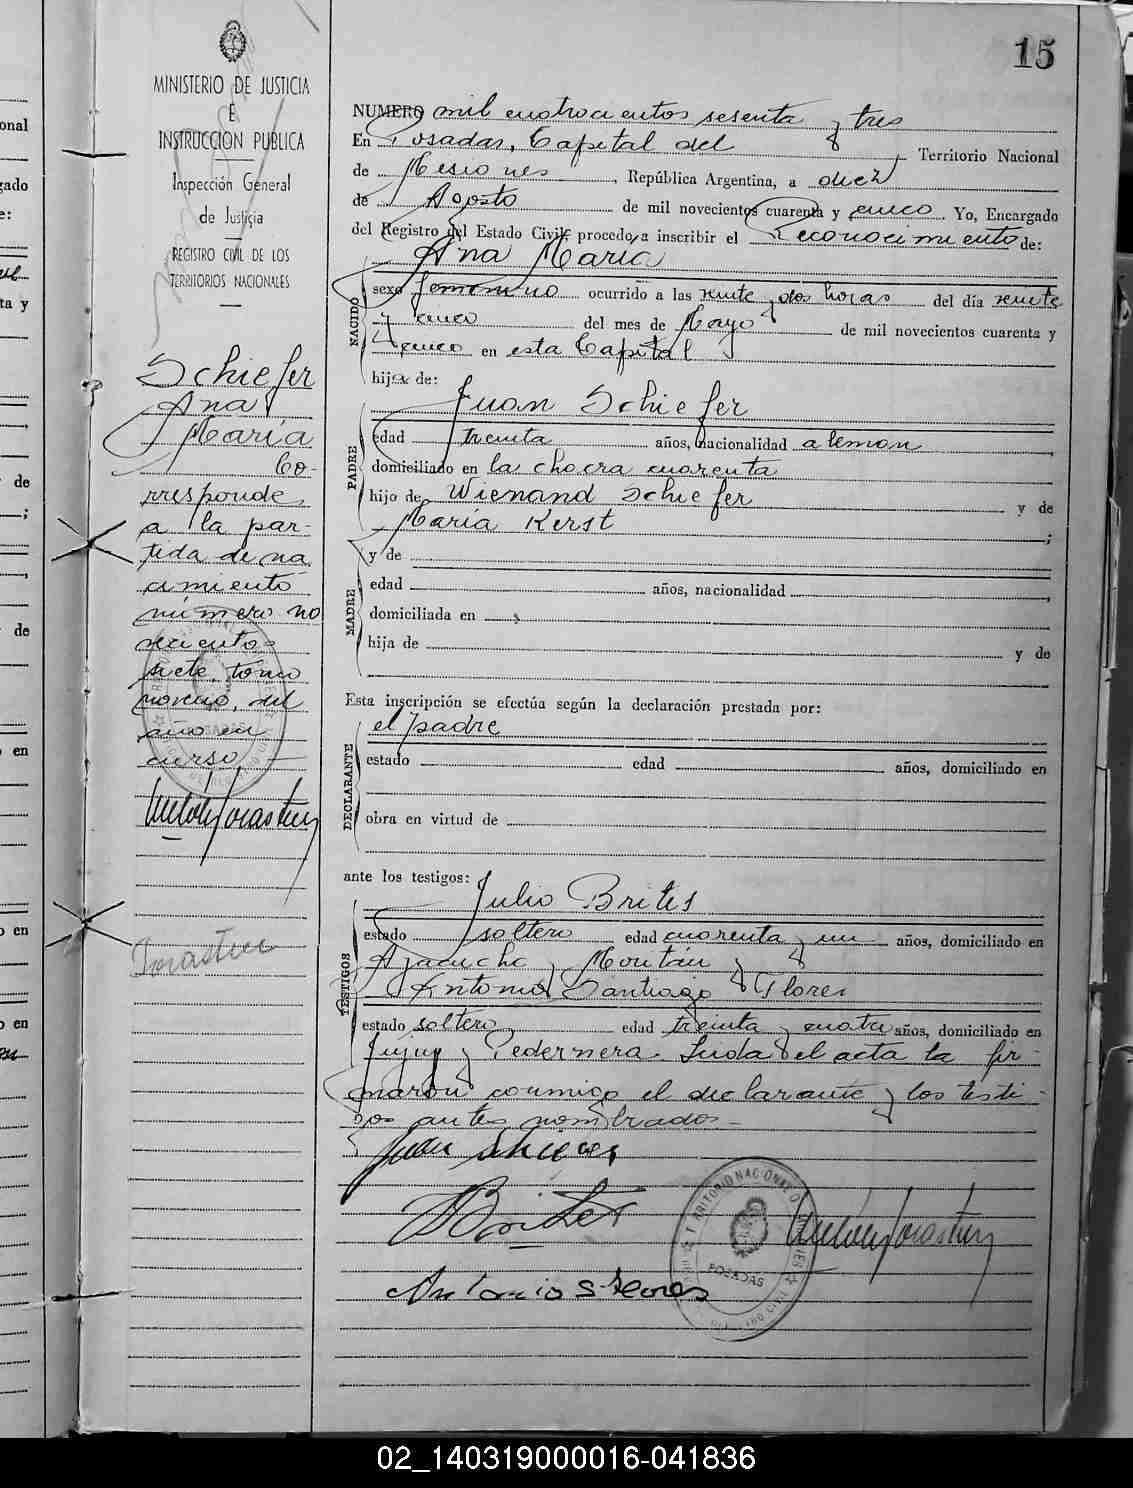 15
MINISTERIO DE JUSTICIA
E
INSTRUCCION PUBLICA
Inspección General
de Justicia
REGISTRO CIVIL DE LOS
TERRITORIOS NACIONALES
Schiefer
Ana
María
Co-
rresponde
a la par-
tida de na
cimiento
número no
vecientos
siete, tomo
noveno, del
año en
curso
NUMERO mil cuatrocientos sesenta y tres
En Posadas, Capital del Territorio Nacional
de Misiones, República Argentina, a diez
de Agosto de mil novecientos cuarenta y cinco. Yo, Encargado
del Registro del Estado Civil, procedo a inscribir el Reconocimiento de:
Ana María
NACIDO
sexo femenino ocurrido a las veinte y dos horas del día veinte
y cinco del mes de Mayo de mil novecientos cuarenta y
cinco en esta Capital
hija de:
Juan Schiefer
PADRE
edad treinta años, nacionalidad aleman
domiciliado en la chacra cuarenta
hijo de Wienand Schiefer y de
María Kerst ;
y de
MADRE
edad años, nacionalidad
domiciliada en
hija de y de
Esta inscripción se efectúa según la declaración prestada por:
el padre
DECLARANTE
estado edad años, domiciliado en
obra en virtud de
ante los testigos:
Julio Brites
TESTIGOS
estado soltero edad cuarenta y un años, domiciliado en
Ayacucho y
Antonio Santiago Flores
estado soltero edad treinta y cuatro años, domiciliado en
Jujuy y Pedernera. Leida el acta la fir-
maron conmigo el declarante y los testi-
gos antes nombrados.-
Juan Schiefer
JBrites
Antonio S. Flores
POSADAS
02_140319000016-041836